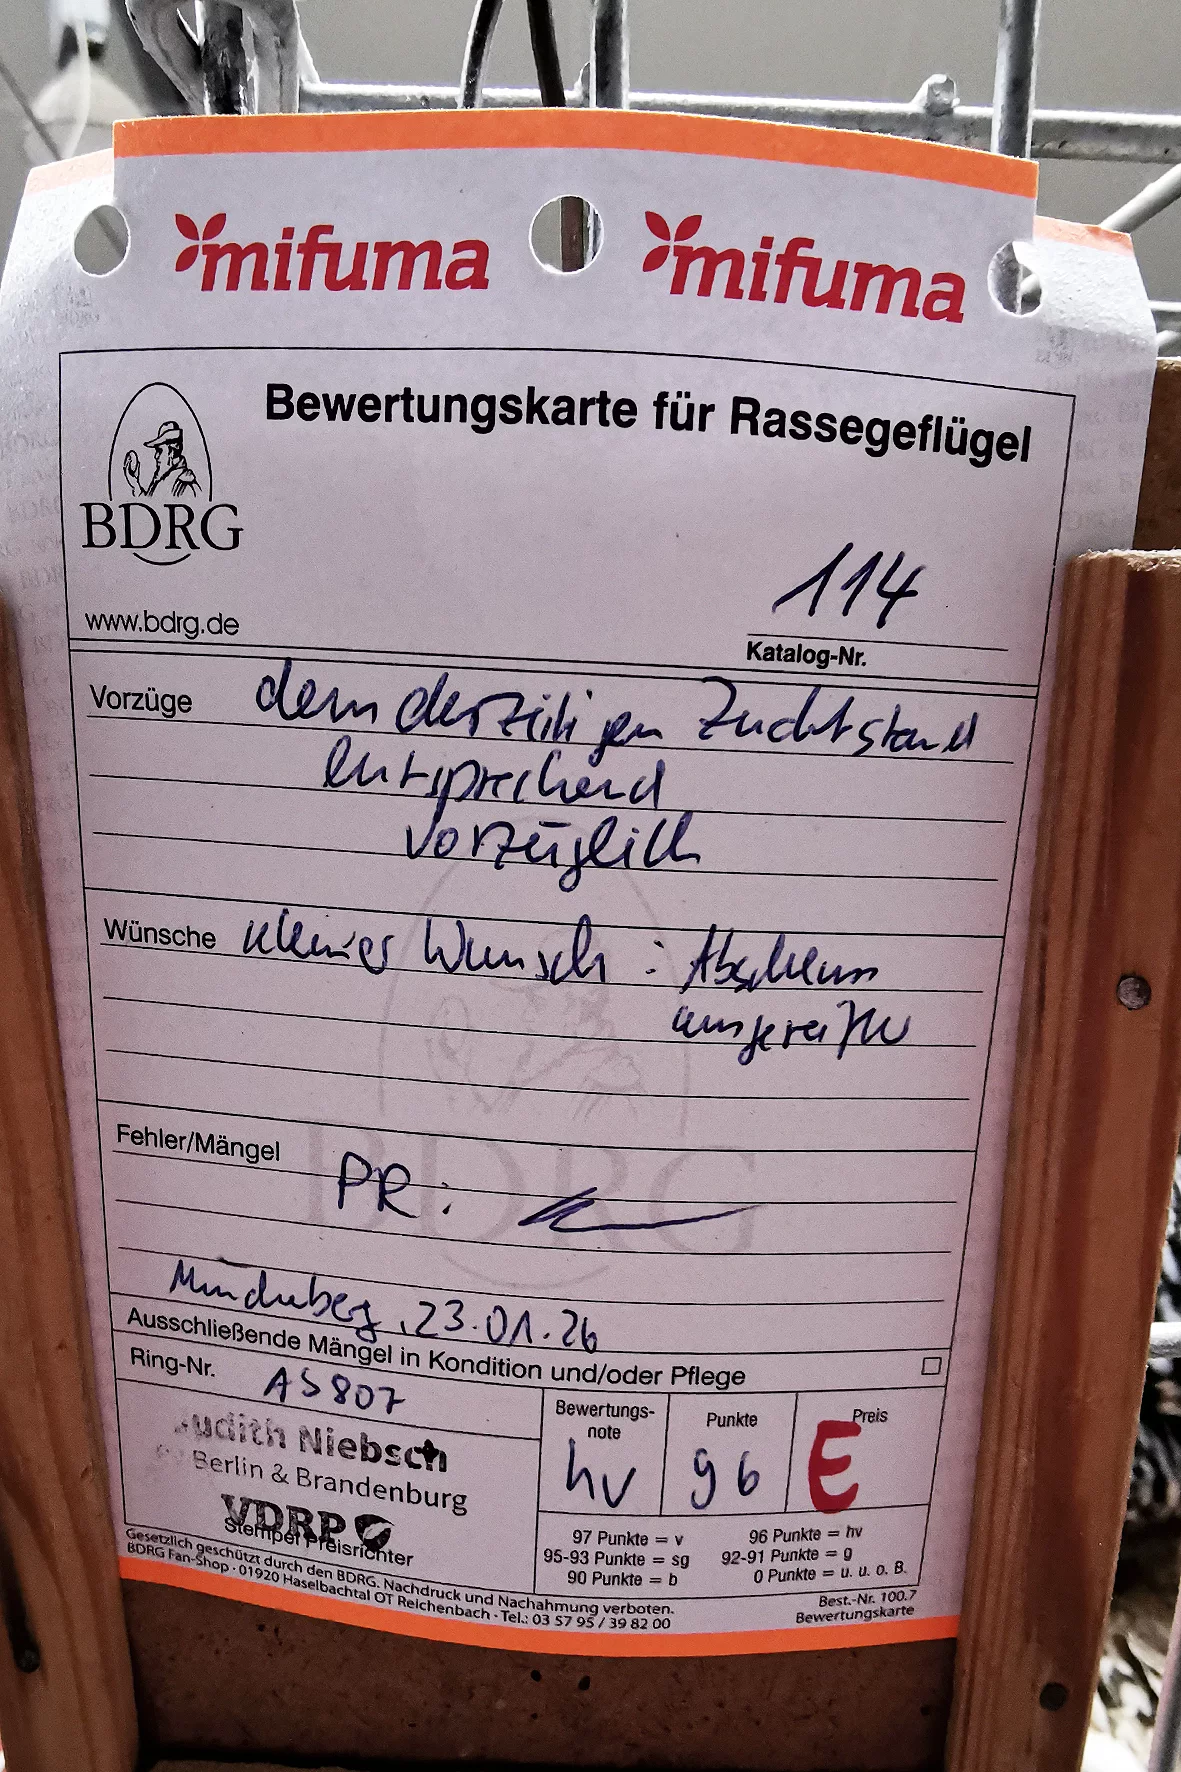 mifuma mifuma
Bewertungskarte für Rassegeflügel
BDRG
www.bdrg.de
114
Katalog-Nr.
Vorzüge dem derzeitigen Zuchtstand
entsprechend
vorzüglich
Wünsche kleiner Wunsch : Abschluss
ausgereifter
BDRG
Fehler/Mängel
PR:
Müncheberg, 23.01.26
Ausschließende Mängel in Kondition und/oder Pflege
Ring-Nr. AS807
Judith Niebsch
Berlin & Brandenburg
VDRP
Stempel Preisrichter
Bewertungs-
note
hv
Punkte
96
Preis
E
97 Punkte = v 96 Punkte = hv
95-93 Punkte = sg 92-91 Punkte = g
90 Punkte = b 0 Punkte = u. u. o. B.
Gesetzlich geschützt durch den BDRG. Nachdruck und Nachahmung verboten.
BDRG Fan-Shop · 01920 Haselbachtal OT Reichenbach · Tel.: 03 57 95 / 39 82 00
Best.-Nr. 100.7
Bewertungskarte